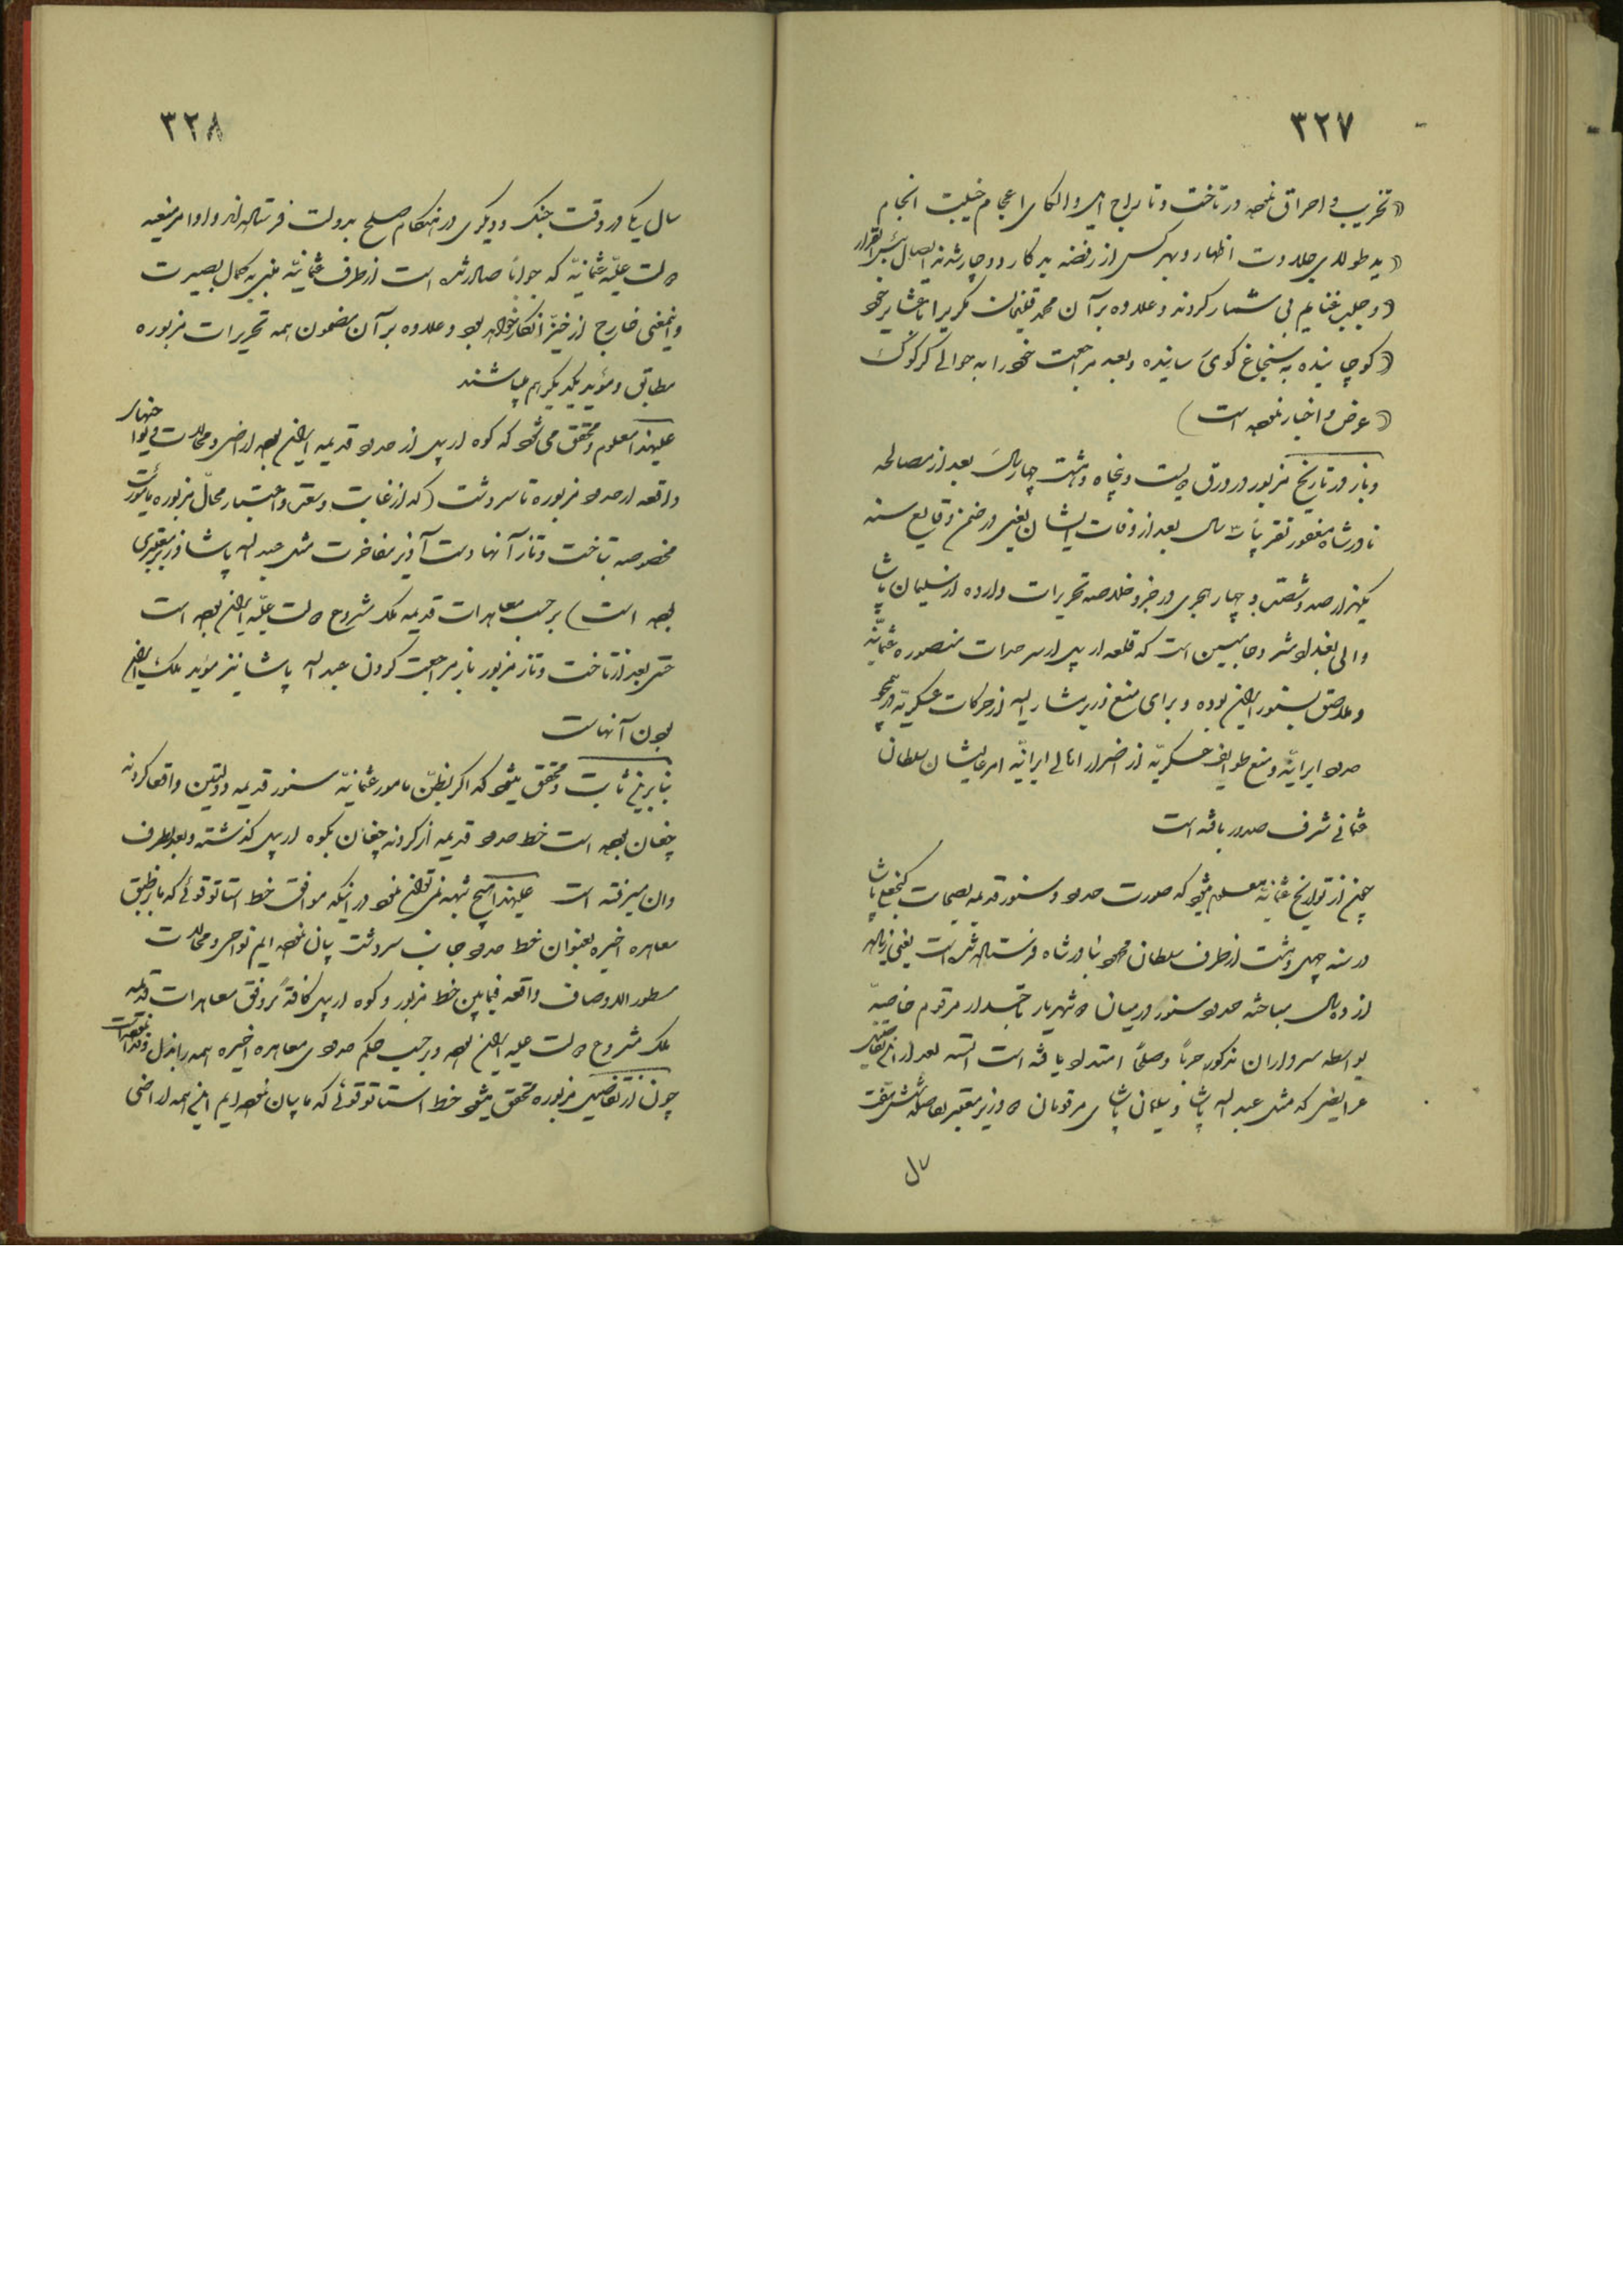 ۳۲۷
تخریب و احراق نموده در تاخت و تاراج اهالی و الکای اعجام خیبت انجام
ید طولای جلادت اظهار و بهر کس از رفضه بد کار دوچار شدند ایصال بئس القرار
و جلب غنایم بی شمار کردند و علاوه بر آن محمد قلیخان مکری را با عشایر خود
کوچانیده به سنجاغ کوی سانیده و بعد مراجعت خود را به حوالی کرکوک
عرض و اخبار نموده است)
و باز در تاریخ مزبور در ورق دویست و پنجاه و هشت چهار سال بعد از مصالحه
نادرشاه مغفور تقریباً سال بعد از وفات ایشان یعنی در ضمن وقایع سنه
یکهزار صد و شصت و چهار هجری در جزو خلاصه تحریرات وارده از سلیمان پاشا
والی بغداد شرحا مبین است که قلعه اربیل از سرحدات منصوره عثمانیه
و ملاصق بسنور ایران بوده و برای منع وزیر مشار الیه از حرکات عسکریه
حدود ایرانیه و منع طوایف عسکریه از اضرار اهالی ایرانیه امر عالیشان سلطان
عثمانی شرف صدور یافته است
چون از تواریخ عثمانیه معلوم میشود که صورت حدود و سنور قدیمه
در سنه چهل و هشت از طرف سلطان محمود بنادر شاه فرستاده شده است یعنی
از دو سال مباحثه حدود سنور در میان دو شهریار تاجدار مرقوم خاصةً
بواسطه سرداران مذکور حرباً و صلحاً امتداد یافته است البته بعد از این تفاصیل
عرایضی که مثل عبد الله پاشا و سلیمان پاشای مرقومان دو وزیر معتبر بفاصله شانزده هفده
سال
۳۲۸
سال یکی در وقت جنگ و دیگری در هنگام صلح بدولت فرستاده اند و اوامر منیعه
دولت علیّه عثمانیّه که جواباً صادر شده است از طرف عثمانیّه مبنی به کمال بصیرت
و اینمعنی خارج از حیّز انکار خواهد بود و علاوه بر آن مضمون همه تحریرات مزبوره
مطابق و مؤید یکدیگر هم میباشند
علیهذا معلوم و محقق می شود که کوه اربیل از حدود قدیمه ایران بوده اراضی و محالات و نواحیهای
واقعه از حدود مزبوره تا سردشت (که از غایت وسعت و اعتبار محالّ مزبوره
مخصوصه بتاخت و تاز آنها دست آویز مفاخرت مثل عبد الله پاشا وزیر معتبری
بوده است) بر حسب معاهدات قدیمه ملک مشروع دولت علیّه ایران بوده است
حتی بعد از تاخت و تاز مزبور باز مراجعت کردن عبد الله پاشا نیز مؤید ملک ایران
بودن آنهاست
بنا بر این ثابت و محقق میشود که اگر بظنّ مامور عثمانیّه سنور قدیمه دولتین واقعا کردنه
چغان بوده است خط حدود قدیمه از کردنه چغان بکوه اربیل گذشته و بعد بطرف
وان میرفته است علیهذا هیچ شبهه نمی توان نمود در اینکه موافق خط استاتوقوئی که ما بر طبق
معاهده اخیره بعنوان خط حدود جانب سردشت بیان نموده ایم نواحی و محالات
مسطور الاوصاف واقعه فیمابین خط مزبور و کوه اربیل کافةً بر وفق معاهدات قدیمه
ملک مشروع دولت علیه ایران بوده و بر حسب حکم حدودی معاهده اخیره همه را بذل و فدا نموده است
چون از تفاصیل مزبوره محقق میشود خط استاتوقوئی که ما بیان نموده ایم اینهمه اراضی